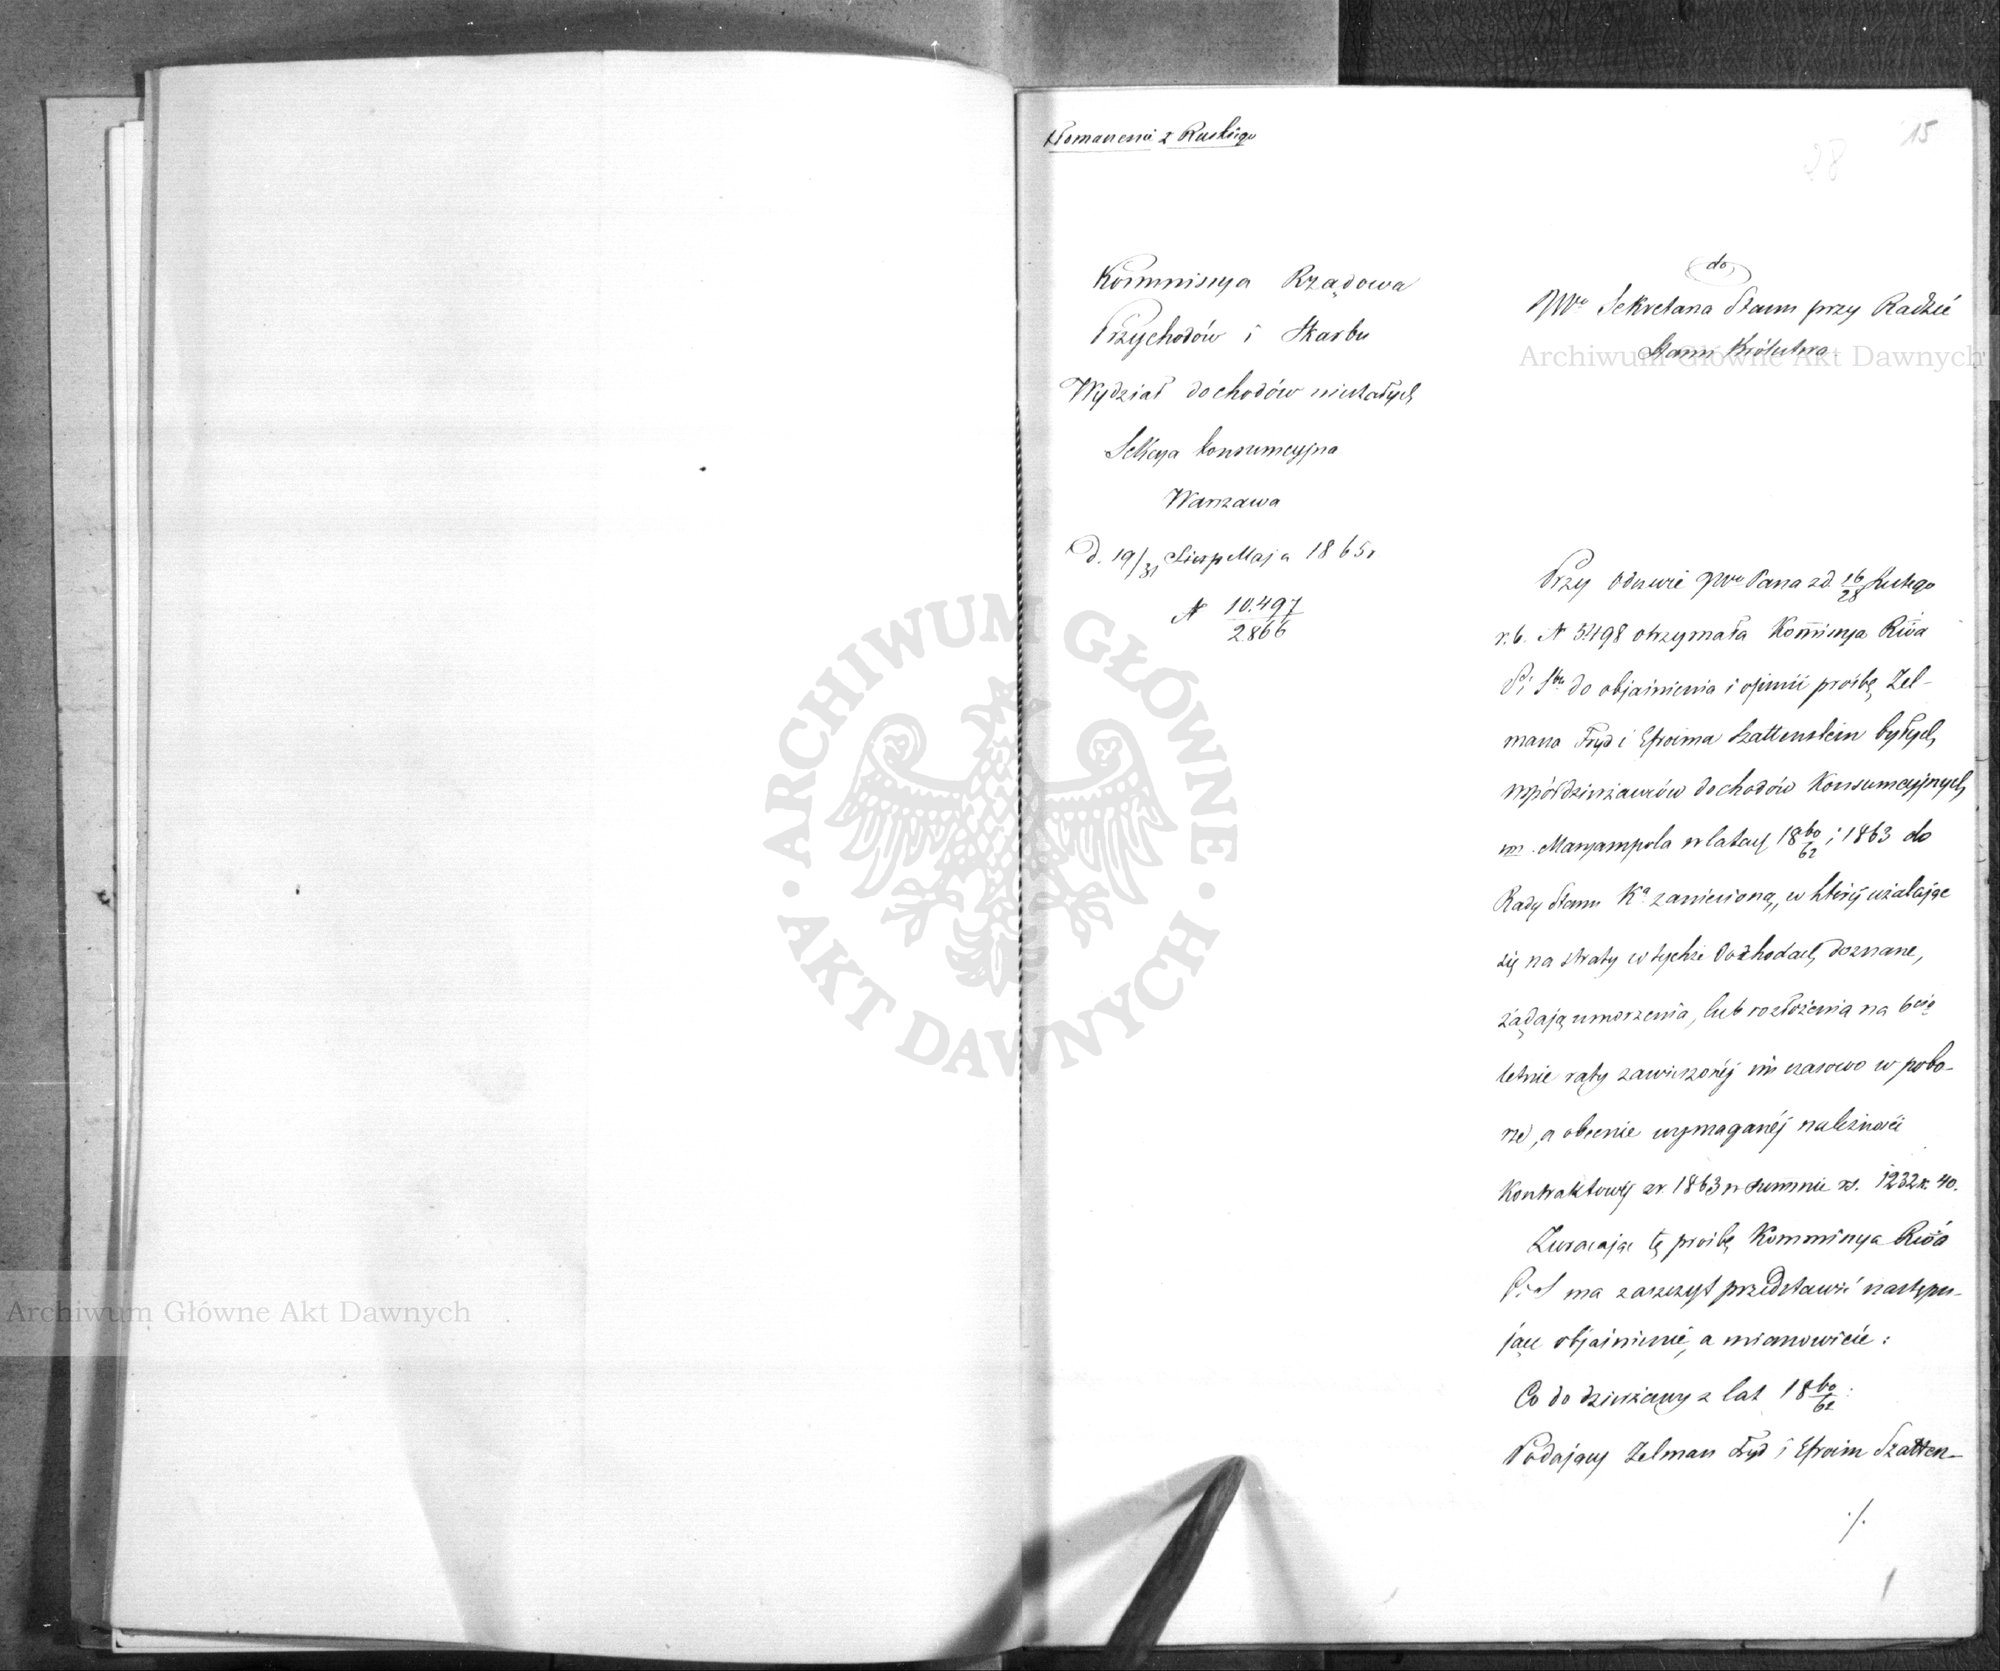 Tłomaczenie z Ruskiego
15
28
Kommissya Rządowa
Przychodów i Skarbu
Wydział dochodów niestałych
Sekcya konsumcyjna
Warszawa
d. 19/31 Maja 1865 r
N 10.497/2866
do
JWo Sekretarza Stanu przy Radzie
Stanu Królestwa
Przy odezwie JWo Pana z d. 16/28 Lutego
r. b. N 5498 otrzymała Kommisya Rwa
P i Sbu do objaśnienia i opinii prośbę Zel-
mana Fryd i Efroima Szattenstein byłych
współdzierżawców dochodów Konsumcyjnych
m. Maryampola w latach 1860/62 i 1863 do
Rady Stanu Ka zaniesioną, w któréj użalając
się na straty w tychże dochodach doznane,
żądają umorzenia, lub rozłożenia na 6cio
letnie raty zawieszonéj im czasowo w pobo-
rze, a obecnie wymaganéj należności
Kontraktowéj z r. 1863 w summie rs. 1232 k. 40.
Zwracając tę prośbę Kommisya Rwa
P i S ma zaszczyt przedstawić następu-
jące objaśnienie, a mianowicie:
Co do dzierżawy z lat 1860/62:
Podający Zelman Fryd i Efroim Szatten-
./.
Archiwum Główne Akt Dawnych
Archiwum Główne Akt Dawnych
ARCHIWUM GŁÓWNE
AKT DAWNYCH